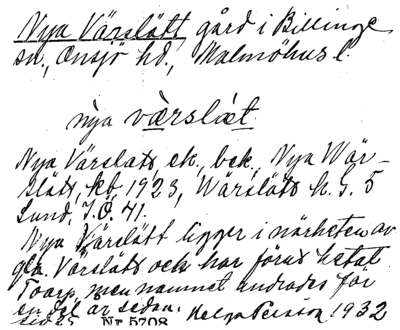 Nya Värslätt gård i Billinge
sn., Onsjö hd., Malmöhus l.
nỳa værslæt
Nya Värslats ek., bek., Nya Wär-
slätt, kb 1923, Wärslätts h. G. 5
Lund, J.Ö. 41.
Nya Värslätt ligger i närheten av
gla. Värslätt och har förut hetat
Toarp, men namnet ändrades för
en del år sedan. Helga Persson 1932
Nr 5708